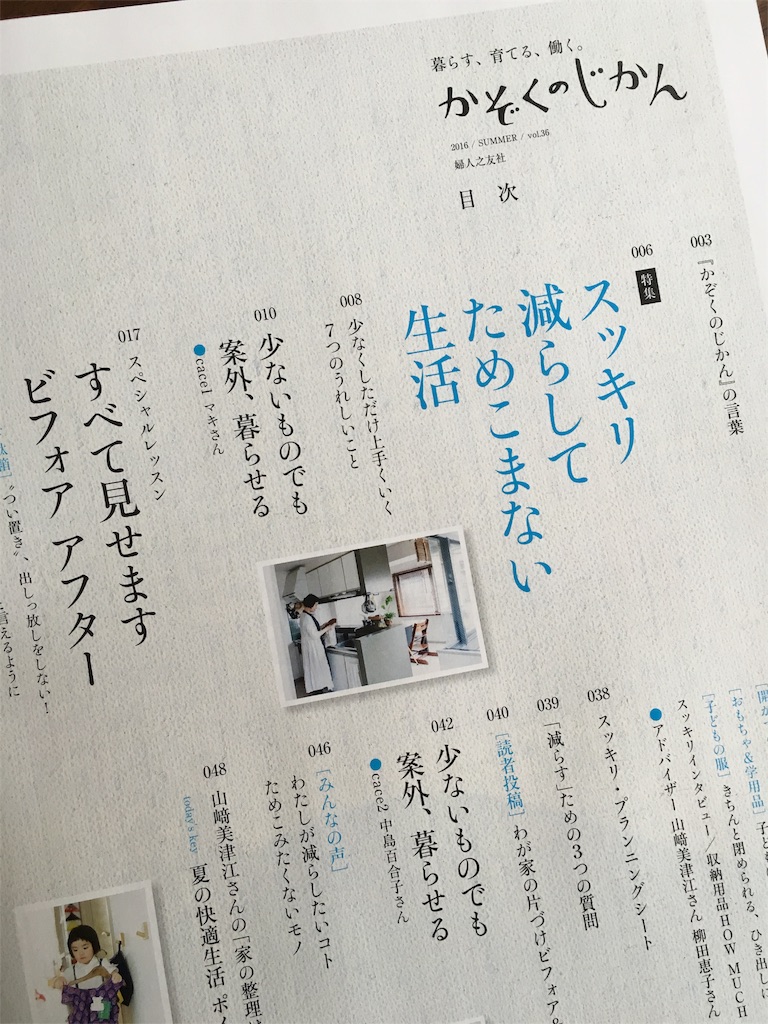 暮らす、育てる、働く。
かぞくのじかん
2016 / SUMMER / vol.36
婦人之友社
目次
003
『かぞくのじかん』の言葉
006
特集
スッキリ
減らして
ためこまない
生活
008
少なくしただけ上手くいく
7つのうれしいこと
010
少ないものでも
案外、暮らせる
●cace1 マキさん
017
スペシャルレッスン
すべて見せます
ビフォア アフター
“つい置き”、出しっ放しをしない!
言えるように
[おもちゃ&学用品]
[子どもの服] きちんと閉められる、ひき出しに
スッキリインタビュー/収納用品HOW MUCH
●アドバイザー 山﨑美津江さん 柳田恵子さん
038
スッキリ・プランニングシート
039
「減らす」ための3つの質問
040
[読者投稿] わが家の片づけビフォア&
042
少ないものでも
案外、暮らせる
●cace2 中島百合子さん
046
[みんなの声]
わたしが減らしたいコト
ためこみたくないモノ
048
山﨑美津江さんの「家の整理
today's key 夏の快適生活 ポイ